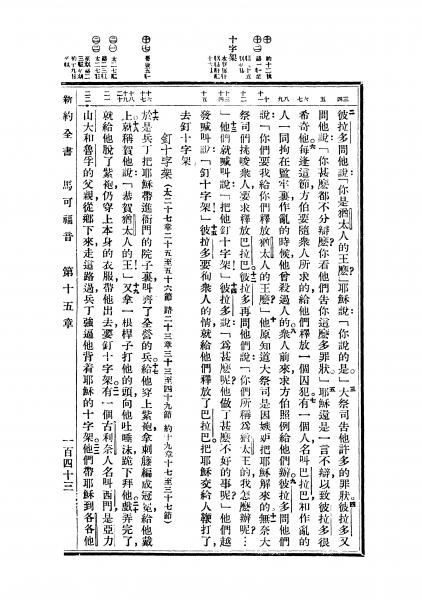 十字架
彼拉多問他說「你是猶太人的王麼」耶穌說「你說的是」大祭司告他許多的罪狀彼拉多又
問他說「你甚麼都不分辯麼你看他們告你這麼多罪狀」耶穌還是一言不辯以致彼拉多很
希奇他每逢這節方伯要隨衆人所求的給他們釋放一個囚犯有一個人名叫巴拉巴和作亂的
人一同拘在監牢裏作亂的時候他曾殺過人的衆人前來求方伯照例給他們辦彼拉多問他們
說「你們要我給你們釋放猶太人的王麼」他原知道大祭司是因嫉妒把耶穌解來的無奈大
祭司們挑唆衆人要求釋放巴拉巴彼拉多再問他們說「你們所稱爲猶太王的我怎麼辦呢…
」他們就喊叫說「把他釘十字架」彼拉多說「爲甚麼呢他做了甚麼不好的事呢」他們越
發喊叫說「釘十字架」彼拉多要徇衆人的情就給他們釋放了巴拉巴把耶穌交給人鞭打了
去釘十字架
釘十字架（太二十七章二十五至五十六節 路二十三章三十三至四十九節 約十九章十七至三十七節）
於是兵丁把耶穌帶進衙門的院子裏叫齊了全營的兵給他穿上紫袍拿刺藤編成冠冕給他戴
上就稱賀他說「恭賀猶太人的王」又拿一根桿子打他的頭向他吐唾沫跪下拜他戲弄完了
就給他脫了紫袍仍穿上本身的衣服帶他出去要釘十字架有一個古利奈人名叫西門是亞力
山大和魯孚的父親從鄉下來走這路過兵丁強逼他背着耶穌的十字架他們帶耶穌到各各他
新約全書 馬可福音 第十五章
一百四十三